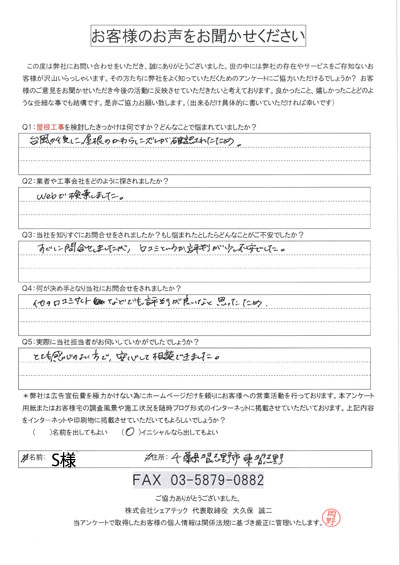 お客様のお声をお聞かせください
この度は弊社にお問い合わせをいただき、誠にありがとうございました。世の中には弊社の存在やサービスをご存知ないお
客様が沢山いらっしゃいます。その方たちに弊社をよく知っていただくためのアンケートにご協力いただけるでしょうか？ お客
様のご意見をお聞かせいただき今後の活動に反映させていただきたいと考えております。良かったこと、嬉しかったことどのよ
うな些細な事でも結構です。是非ご協力お願い致します。（出来るだけ具体的に書いていただければ幸いです）
Q1：屋根工事を検討したきっかけは何ですか？どんなことで悩まれていましたか？
台風が過ぎし、屋根のかわらにズレが確認されたため。
Q2：業者や工事会社をどのように探されましたか？
webで検索しました。
Q3：当社を知りすぐにお問合せをされましたか？もし悩まれたとしたらどんなことがご不安でしたか？
すぐに問合せしましたが、口コミというか評判が少し不安でした。
Q4：何が決め手となり当社にお問合せをされましたか？
他の口コミサイトなどでも評判が良いなと思ったため。
Q5：実際に当社担当者がお伺いしていかがでしたでしょうか？
とても感じのよい方で、安心して相談できました。
＊弊社は広告宣伝費を極力かけない為にホームページだけを頼りにお客様への営業活動を行っております。本アンケート
用紙またはお客様宅の調査風景や施工状況を随時ブログ形式のインターネットに掲載させていただいております。上記内容
をインターネットや印刷物に掲載させていただいてもよろしいでしょうか？
（　）名前を出してもよい　（○）イニシャルなら出してもよい
お名前： S様　ご住所： 千葉県習志野市東習志野
FAX 03-5879-0882
ご協力ありがとうございました。
株式会社シェアテック 代表取締役 大久保 誠二
当アンケートで取得したお客様の個人情報は関係法規に基づき厳正に管理いたします。